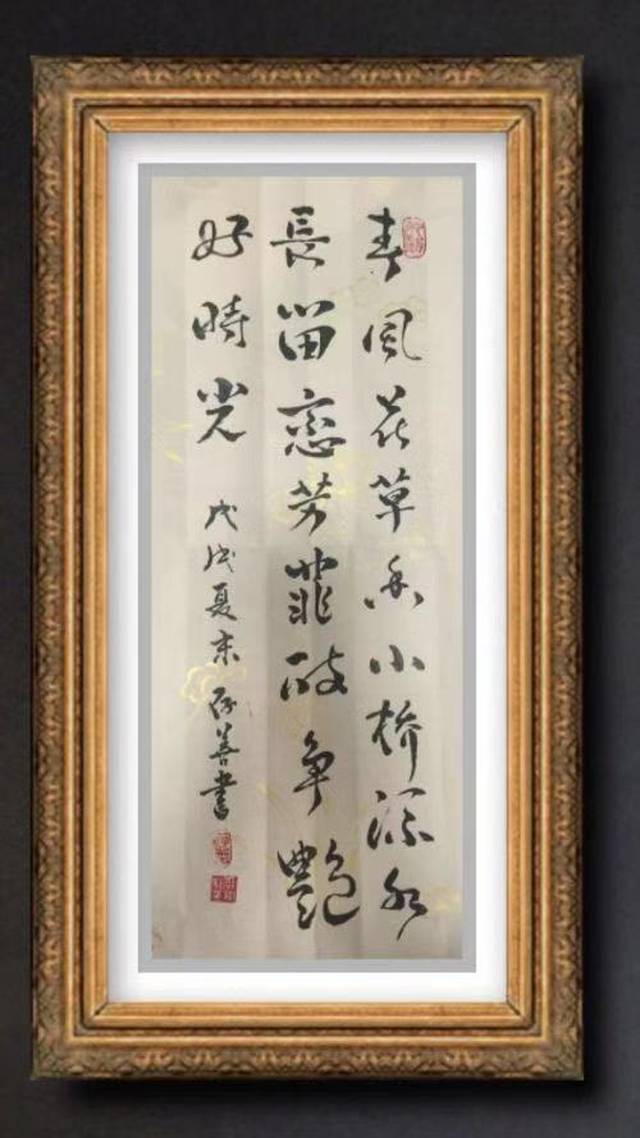 春風花草香小橋流水
長留恋芳菲争艷
好時光
戊戌夏末善書